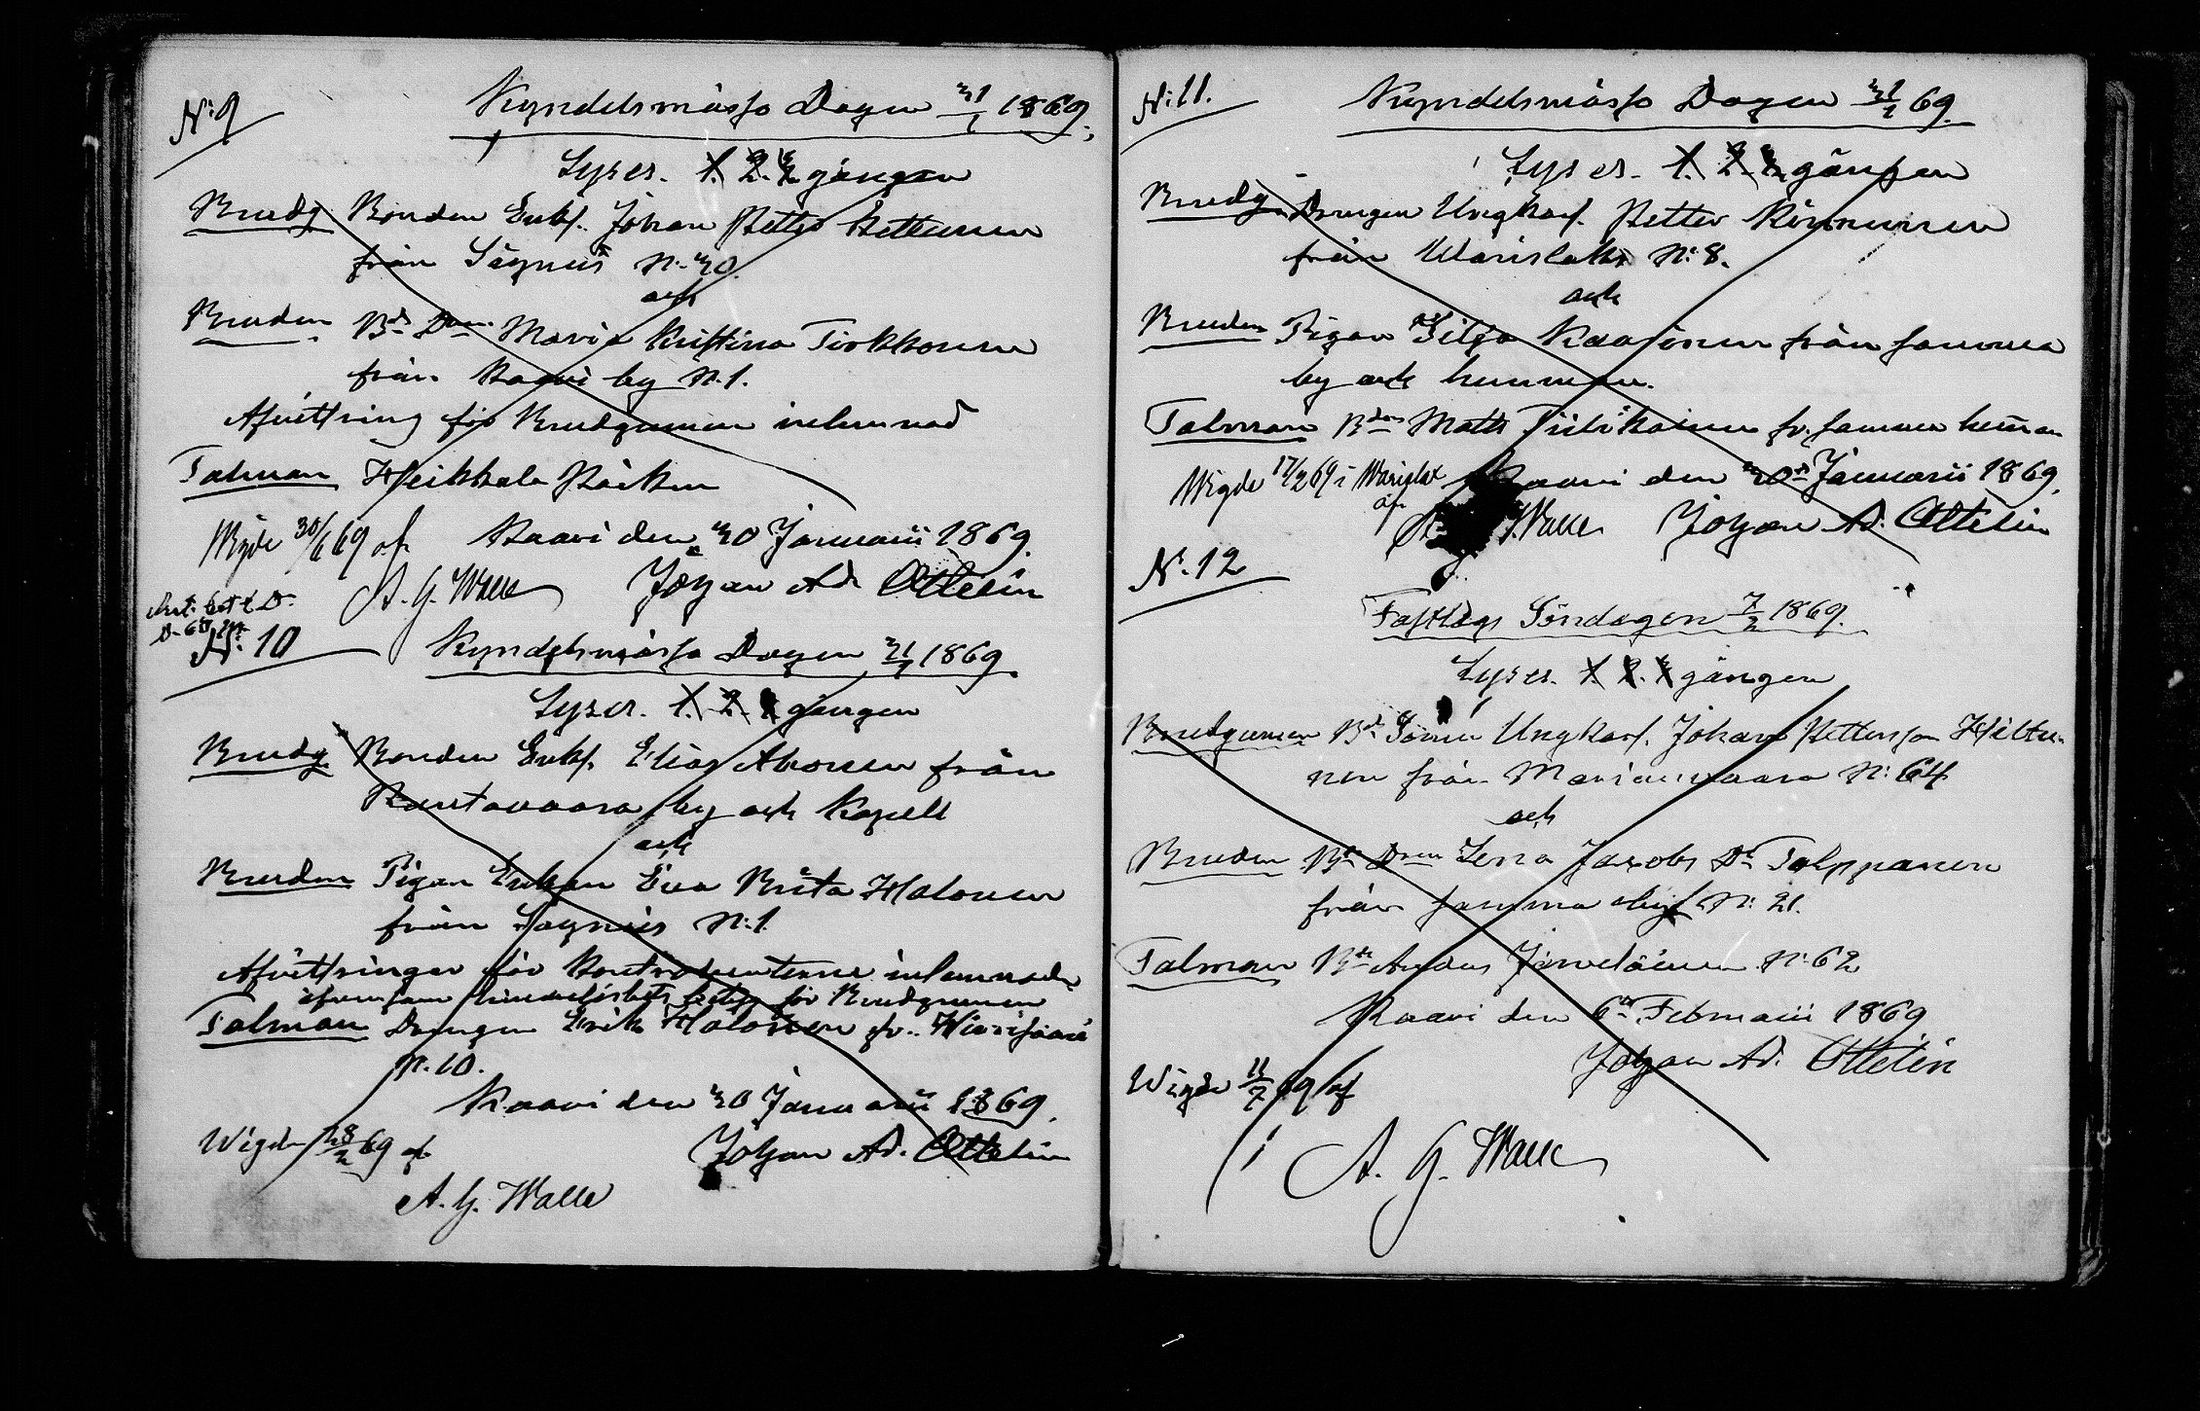 N:9
Kyndelsmässo Dagen 31/1 1869.
Lyses. 1. 2. 3 gången
Brudg. Bonden Enkl. Johan Petter Kettunen
från Sägneis N:30.
och
Bruden Bd Dren Maria Kristina Tirkkonen
från Kaavi by N:1.
Afvittring för Brudgummen inlemnad
Talman Heikkala Räikkn
Wigde 30/6 69 af Kaavi den 30 Januarii 1869.
A. G. Walle Johan Ad. Ottelin
N:10
Kyndelsmässo Dagen 31/1 1869.
Lyses. 1. 2. 3 gången
Brudg. Bonden Enkl. Elias Ahonen från
Rautavaara by och Kapell
och
Bruden Pigan Enkan Eva Brita Halonen
från Sägneis N:1.
Afvittringar för Kontrahenterne inlemnade
äfvensom hinderlöshets betyg för Brudgummen
Talman Drengen Erik Halonen fr. Wiurisaari
N:10.
Kaavi den 30 Januarii 1869.
Wigde 28/2 69 af Johan Ad. Ottelin
A. G. Walle
N:11.
Kyndelsmässo Dagen 31/1 69.
Lyses. 1. 2. 3 gången
Brudg. Drengen Ungkarl. Petter Kinnunen
från Warislaks N:8.
och
Bruden Pigan Silja Kaasinen från samma
by och hemman.
Talman Bden Matts Tiilikainen fr. samma heman
Wigde 17/2 69 i Warislax Kaavi den 30de Januarii 1869.
af A. G. Walle Johan Ad. Ottelin
N:12
Fastlags Söndagen 7/2 1869.
Lyses. 1. 2. 3 gången
Brudgumen Bd Sonen Ungkarl. Johan Pettersson Hiltu-
nen från Marianvaara N:64
och
Bruden Bd Dren Lena Jacobs Dr Tolppanen
från samma by N:21.
Talman Bden Anders Jäneläinen N:62
Kaavi den 6te Februarii 1869
Johan Ad. Ottelin
Wigde 11/7 69 af
A. G. Walle